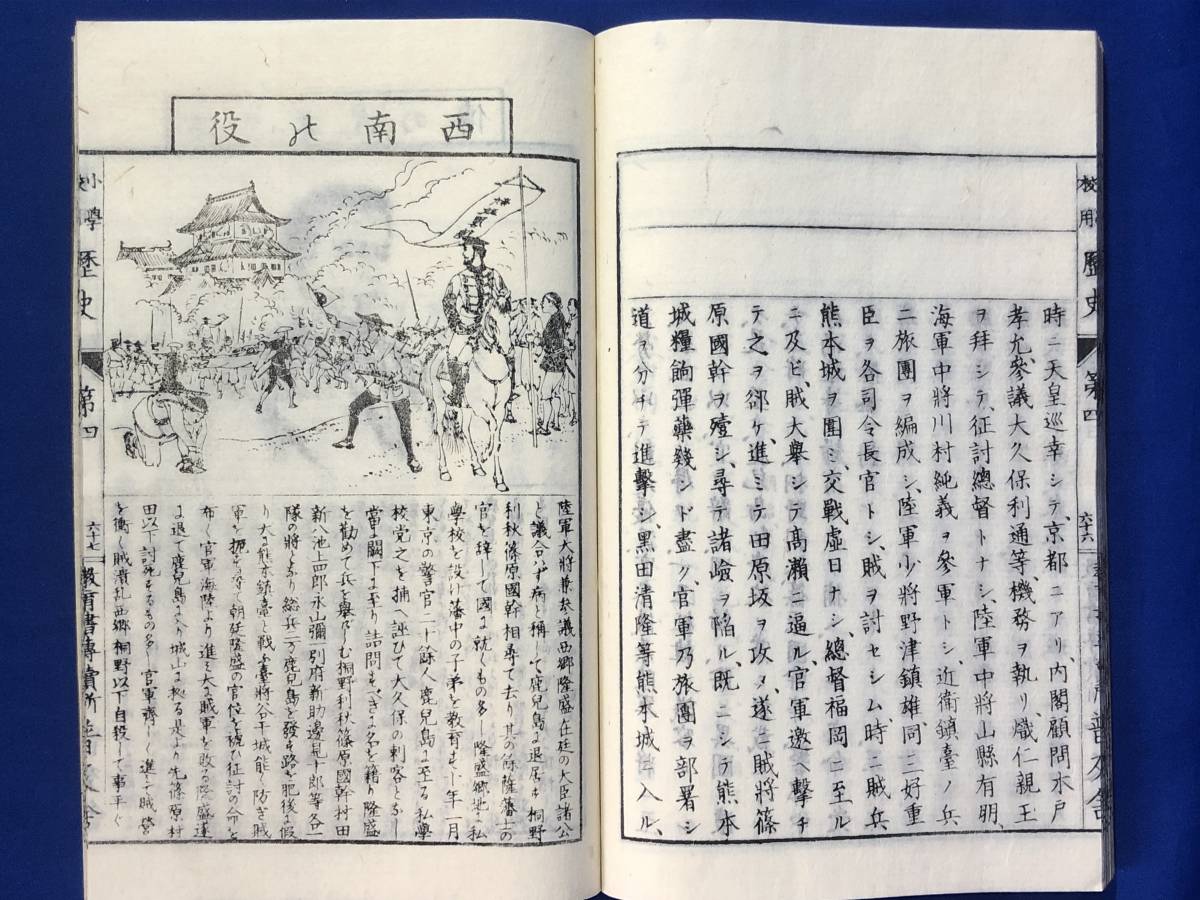 校用 歷史
第四
六十六
普及舍
時ニ天皇巡幸シテ、京都ニアリ、内閣顧問木戸
孝允參議大久保利通等、機務ヲ執リ、熾仁親王
ヲ拜シテ、征討總督トナシ、陸軍中將山縣有朋、
海軍中將川村純義ヲ參軍トシ、近衛鎮臺ノ兵
二旅團ヲ編成シ、陸軍少將野津鎮雄、同三好重
臣ヲ各司令長官トシ、賊ヲ討セシム、時ニ賊兵
熊本城ヲ圍ミ、交戰虚日ナシ、總督福岡ニ至ル
ニ及ビ、賊、大舉シテ髙瀨ニ逼ル、官軍邀ヘ擊チ
テ之ヲ郤ケ、進ミテ田原坂ヲ攻メ、遂ニ賊將篠
原國幹ヲ殪シ、尋テ諸嶮ヲ陷ル、既ニシテ熊本
城糧餉彈藥幾ンド盡ク、官軍乃旅團ヲ部署シ
道ヲ分チテ進擊シ、黒田清隆等熊本城ニ入ル、
西南の役
陸軍大將兼參議西郷隆盛在廷の大臣諸公
と議合ず病と稱して鹿兒島に退居す桐野
利秋篠原國幹相尋て去り其の餘隆藩士の
官を辞して國に就くもの多し隆盛郷地に私
學校を設け藩中の子弟を教育す十年一月
東京の警官二十餘人鹿兒島に至る私學
校党之を捕へ誣ひて大久保の刺客となし
當に闕下に至り詰問すべきを名を藉り隆盛
を勸めて兵を舉げしむ桐野利秋篠原國幹村田
新八池上四郎永山彌一別府新助邊見十郎等各一
隊の將となり総兵二万鹿兒島を發す路を肥後に假
り大に熊本鎮臺と戰ふ臺將谷干城能く防ぎ賊
軍を扼す 朝廷隆盛の官位を褫ひ征討の命を
布し官軍海陸より進て大に賊軍を敗る隆盛遂
に退て鹿兒島に入り城山に據る是より先篠原村
田以下討死するもの多し官軍齊しく進て賊営
を衝し賊潰乱西郷桐野以下自殺して事平ぐ
小學 歷史
第四
六十七
教育書專賣所